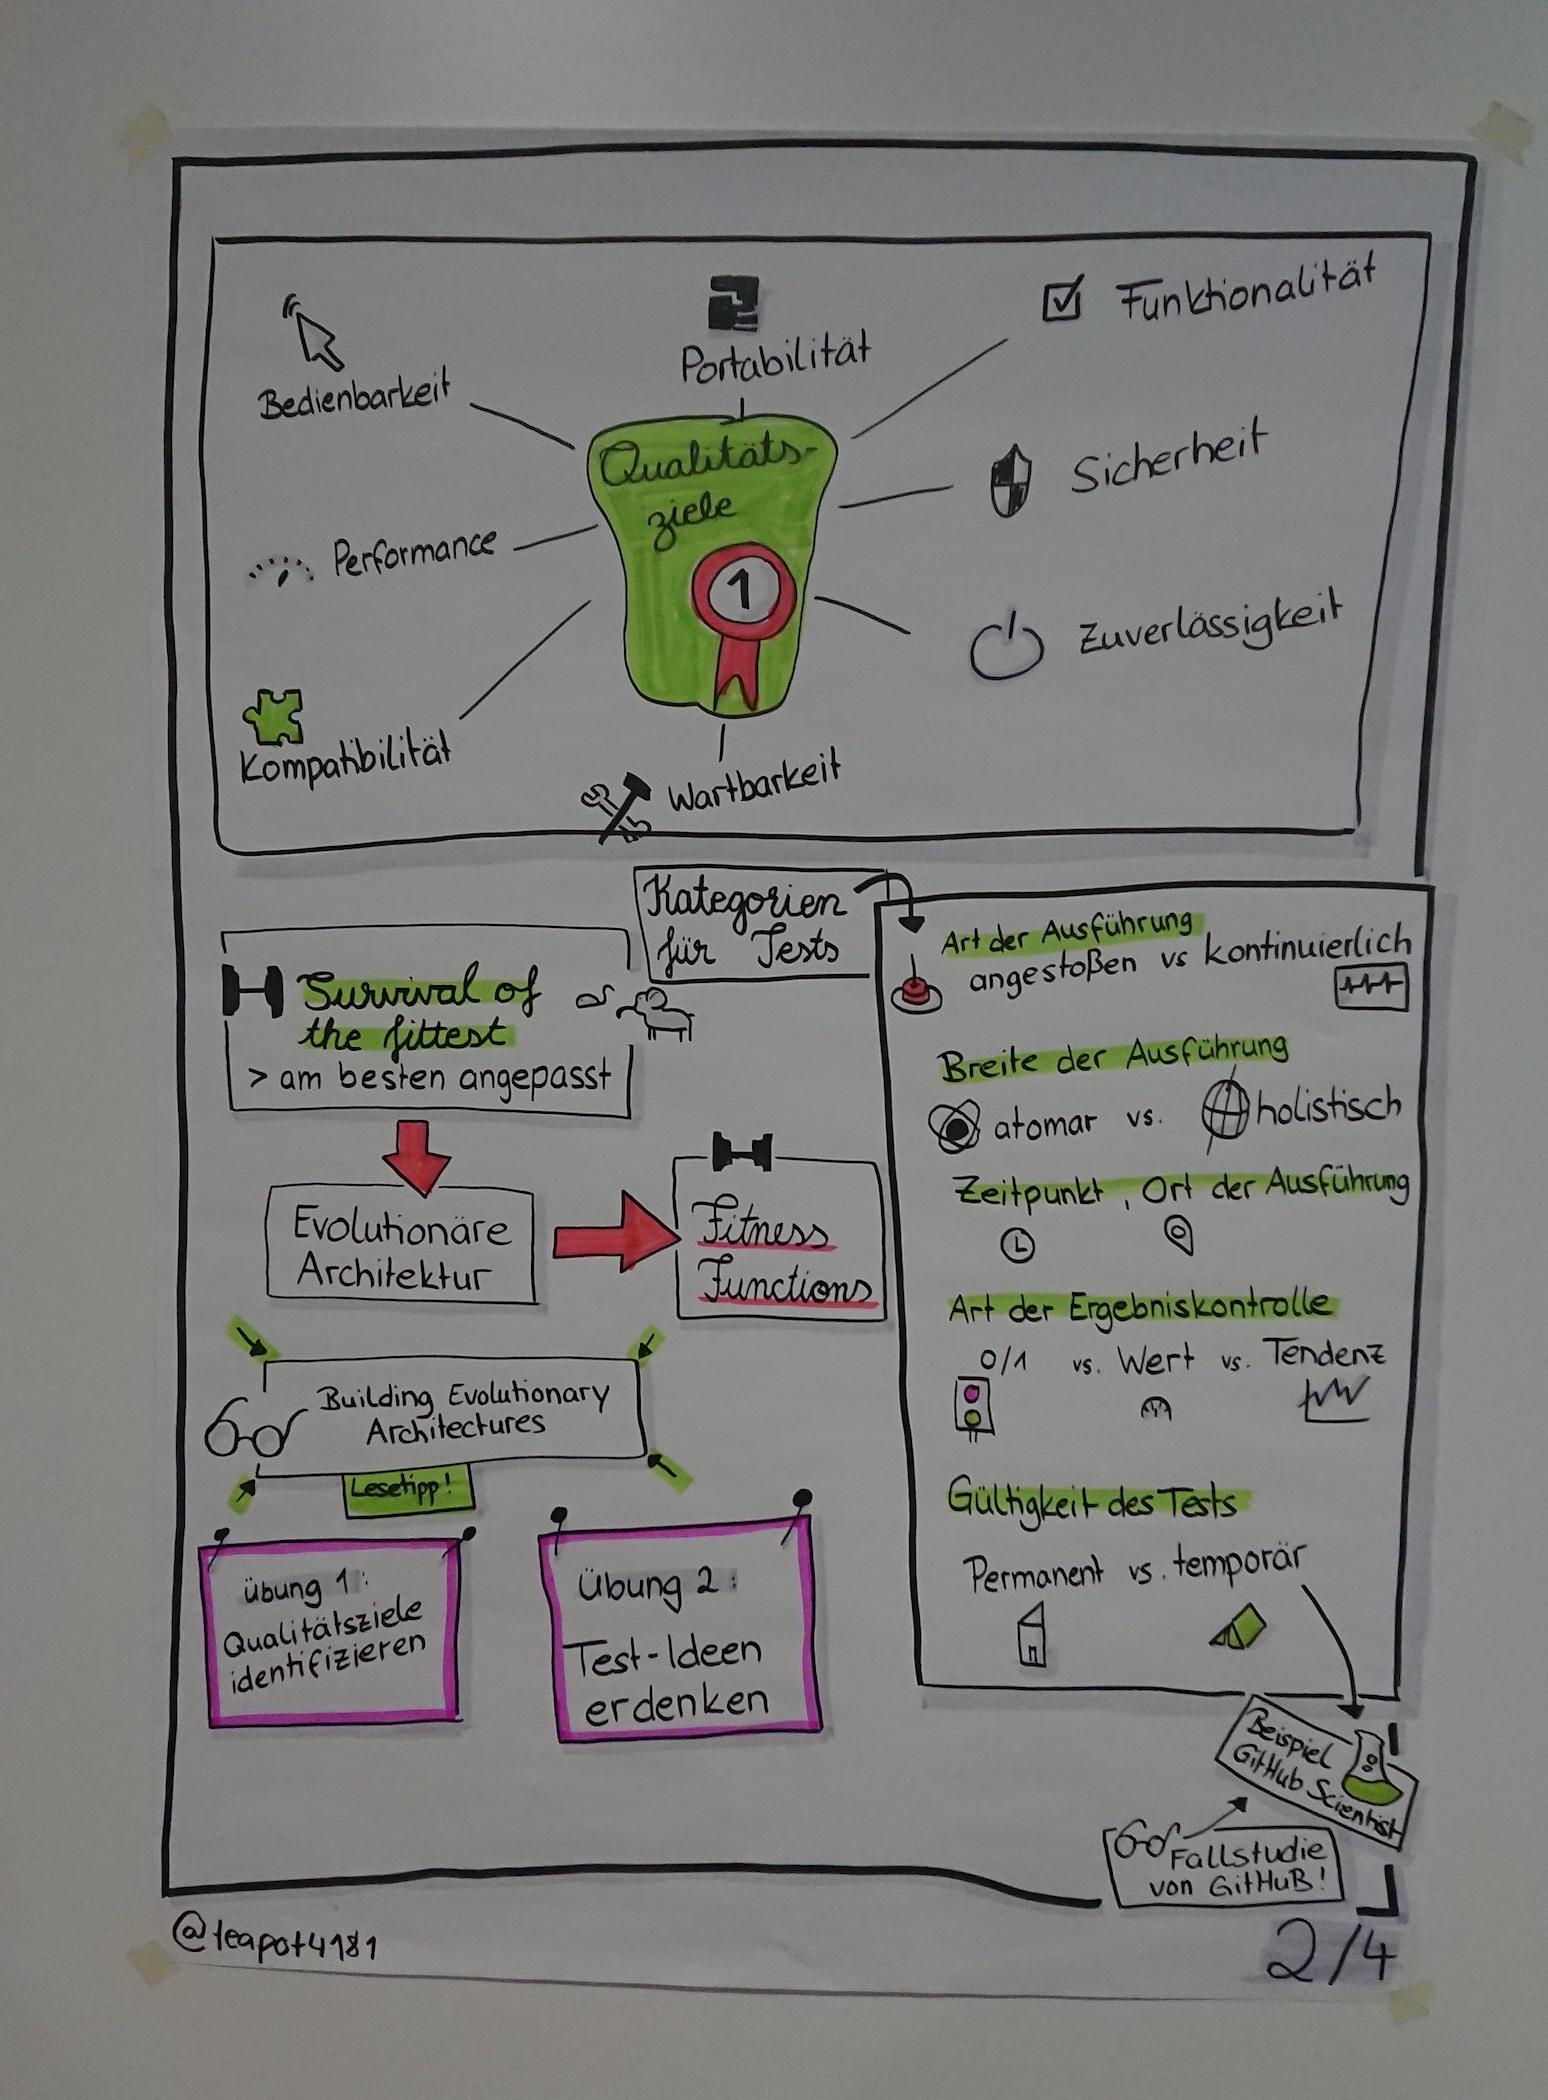 Portabilität
Funktionalität
Bedienbarkeit
Qualitäts-
ziele
1
Sicherheit
Performance
Zuverlässigkeit
Kompatibilität
Wartbarkeit
Kategorien
für Tests
Survival of
the fittest
> am besten angepasst
Evolutionäre
Architektur
Fitness
Functions
Building Evolutionary
Architectures
Lesetipp!
Übung 1:
Qualitätsziele
identifizieren
Übung 2:
Test-Ideen
erdenken
Art der Ausführung
angestoßen vs kontinuierlich
Breite der Ausführung
atomar vs. holistisch
Zeitpunkt, Ort der Ausführung
Art der Ergebniskontrolle
0/1 vs. Wert vs. Tendenz
Gültigkeit des Tests
Permanent vs. temporär
Beispiel
GitHub Scientist
Fallstudie
von GitHuB!
@teapot4181
2/4